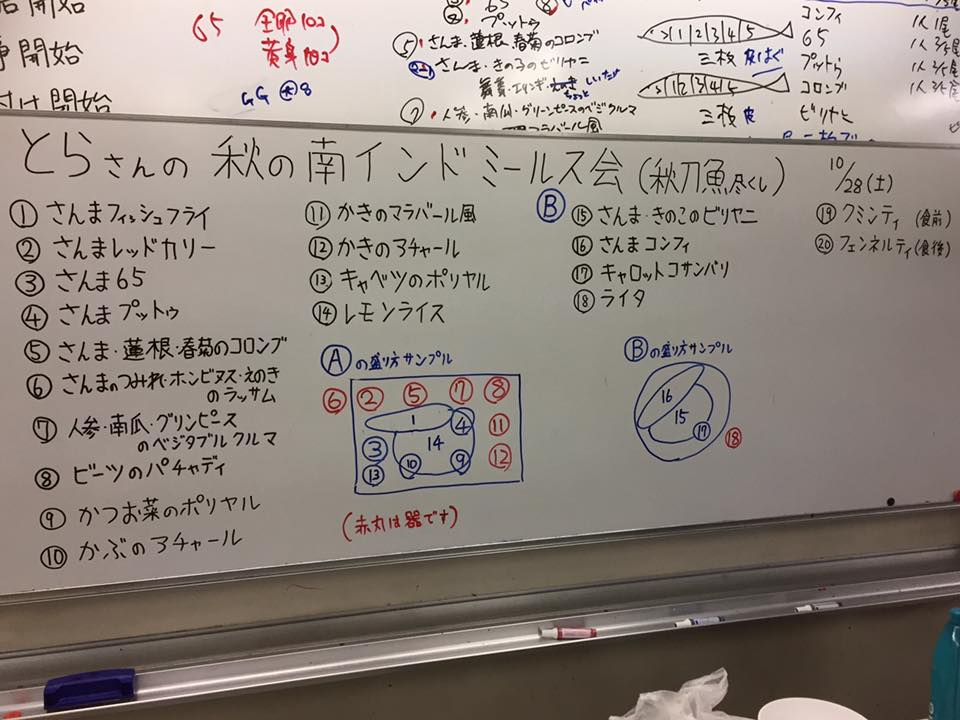 開始
65 全卵10コ
黄身10コ
開始
付け開始
GG ㊛8
プットゥ
⑤・さんま、蓮根、春菊のコロンブ
さんま・きの子のビリヤニ
舞茸・エリンギ・えのき しいたけ
ちょっと
⑦・人参・南瓜・グリーンピースのベジクルマ
マラバール風
1 2 3 4 5
三枚 皮はぐ
1 2 3 4 4
三枚 皮
コンフィ
65
プットゥ
コロンブ
ビリヤニ
1人1尾
1人2/5尾
1人2/5尾
1人2/5尾
とらさんの 秋の南インドミールス会(秋刀魚尽くし)
10/28(土)
① さんまフィッシュフライ
② さんまレッドカリー
③ さんま65
④ さんまプットゥ
⑤ さんま・蓮根・春菊のコロンブ
⑥ さんまのつみれ・ホンビノス・えのき
のラッサム
⑦ 人参・南瓜・グリンピース
のベジタブルクルマ
⑧ ビーツのパチャディ
⑨ かつお菜のポリヤル
⑩ かぶのアチャール
⑪ かきのマラバール風
⑫ かきのアチャール
⑬ キャベツのポリヤル
⑭ レモンライス
Ⓐの盛り方サンプル
⑥ ② ⑤ ⑦ ⑧
1 ④ ⑪
③ 14
⑬ ⑩ ⑨ ⑫
(赤丸は器です)
Ⓑ
⑮ さんま・きのこのビリヤニ
⑯ さんまコンフィ
⑰ キャロットコサンバリ
⑱ ライタ
Ⓑの盛り方サンプル
16
15
⑰ ⑱
⑲ クミンティ (食前)
⑳ フェンネルティ(食後)